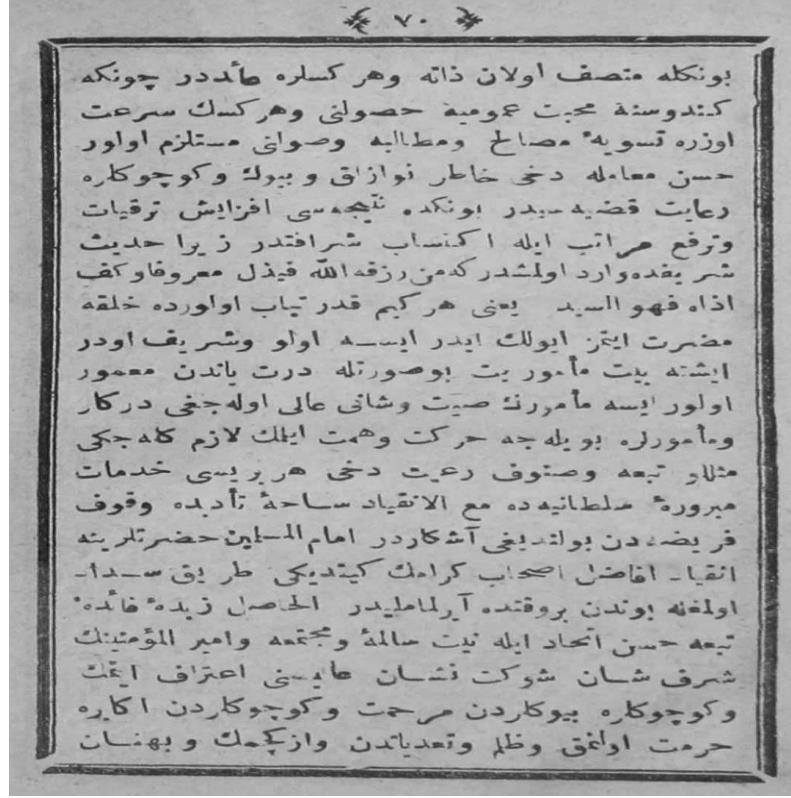 ٧٠
بونكله متصف اولان ذاته وهر كسلره عائددر چونكه
كندوسنه محبت عموميه حصولنى وهركسك سرعت
اوزره تسويهٔ مصالح ومطالبه وصوانى مستلزم اولور
حسن معامله دخى خاطر نوازلق وبيوك وكوچوكلره
رعايت قضيه سيدر بونكده نتيجه سى افزايش ترقيات
وترفع مراتب ايله اكتساب شرافتدر زيرا حديث
شريفده وارد اولمشدر كه من رزقه الله فبذل معروفا وكف
اذاه فهو السيد يعنى هر كيم قدر تياب اولورده خلقه
مضرت ايتمز ايولك ايدر ايسه اولو وشريف اودر
ايشته بيت مأموريت بوصورتله درت ياندن معمور
اولور ايسه مأمورينك صيت وشانى عالى اوله جغى دركار
ومأمورلره بويله جه حركت وهمت ايلمك لازم كله جكى
مثللو تبعه وصنوف رعيت دخى هر بريسى خدمات
مبرورهٔ سلطانيه ده مع الانقياد ساحهٔ تأدبده وقوف
فريضه دن بولنديغى آشكاردر امام المسلمين حضرتلرينه
انقياد افاضل اصحاب كرامك كيتديكى طريق سداد
اولمغله بوندن بروقتده آيرلماملیدر الحاصل زبدهٔ فائدهٔ
تبعه حسن اتحاد ايله نيت سالمهٔ ومجتمعه وامير المؤمنينك
شرف شان شوكت نشان عاليسنى اعتراف ايتمك
وكوچوكلره بيوكلردن مرحمت وكوچوكلردن اكابره
حرمت اولنمق وظلم وتعدياتدن وازكچمك وبهتان